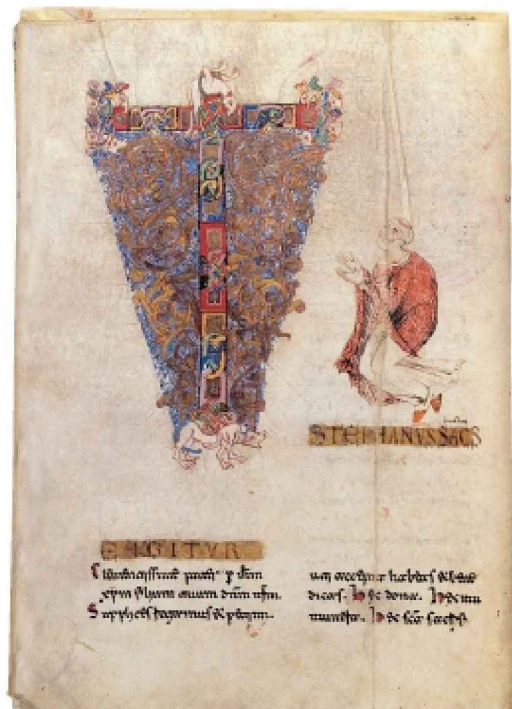 T
STEPHANVS
E IGITVR
Clementissime pater p ihm
xpm filium tuum dnm nrm.
Supplices rogamus & petim.
uti accepta habeas & bene
dicas. Hęc dona. Hęc mu
nera. Hęc scā